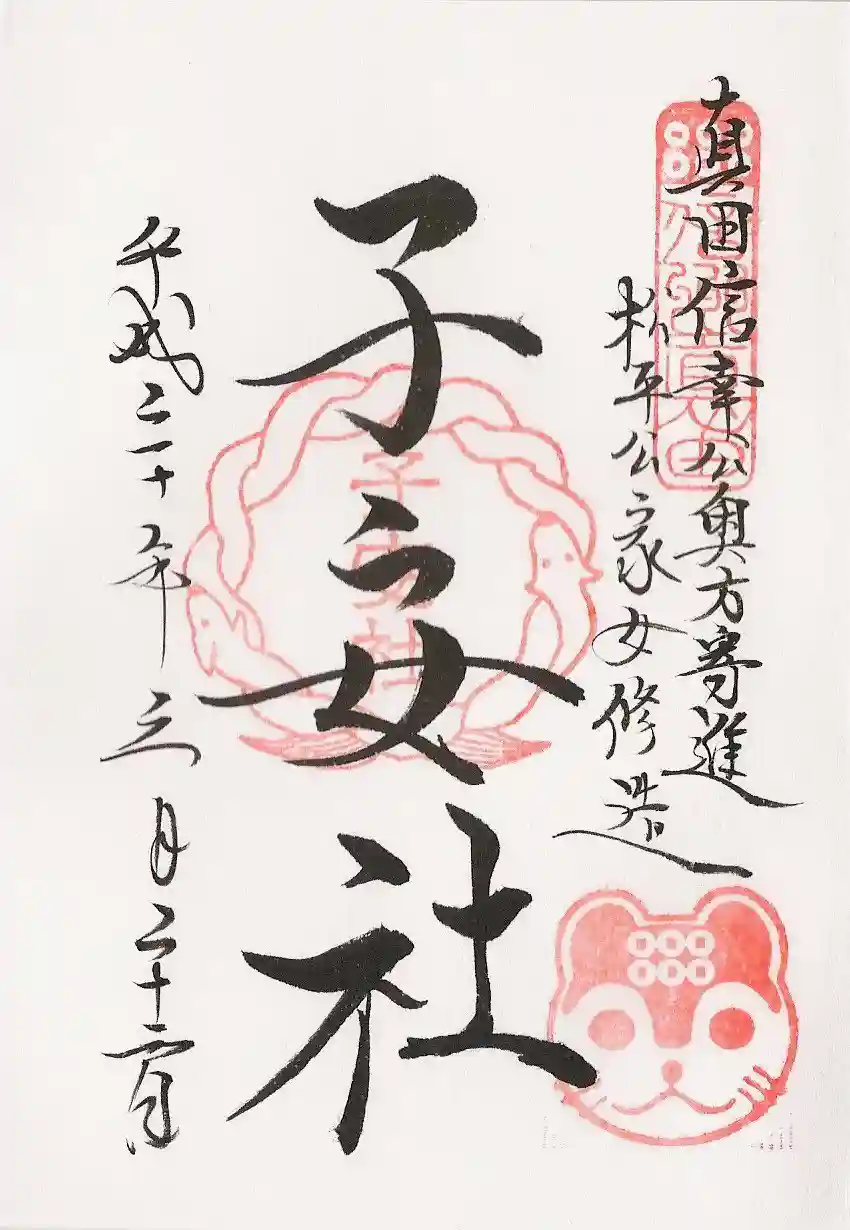 真田信幸公奥方寄進
松平公家女修造
子安社
子安社
平成三十年三月二十